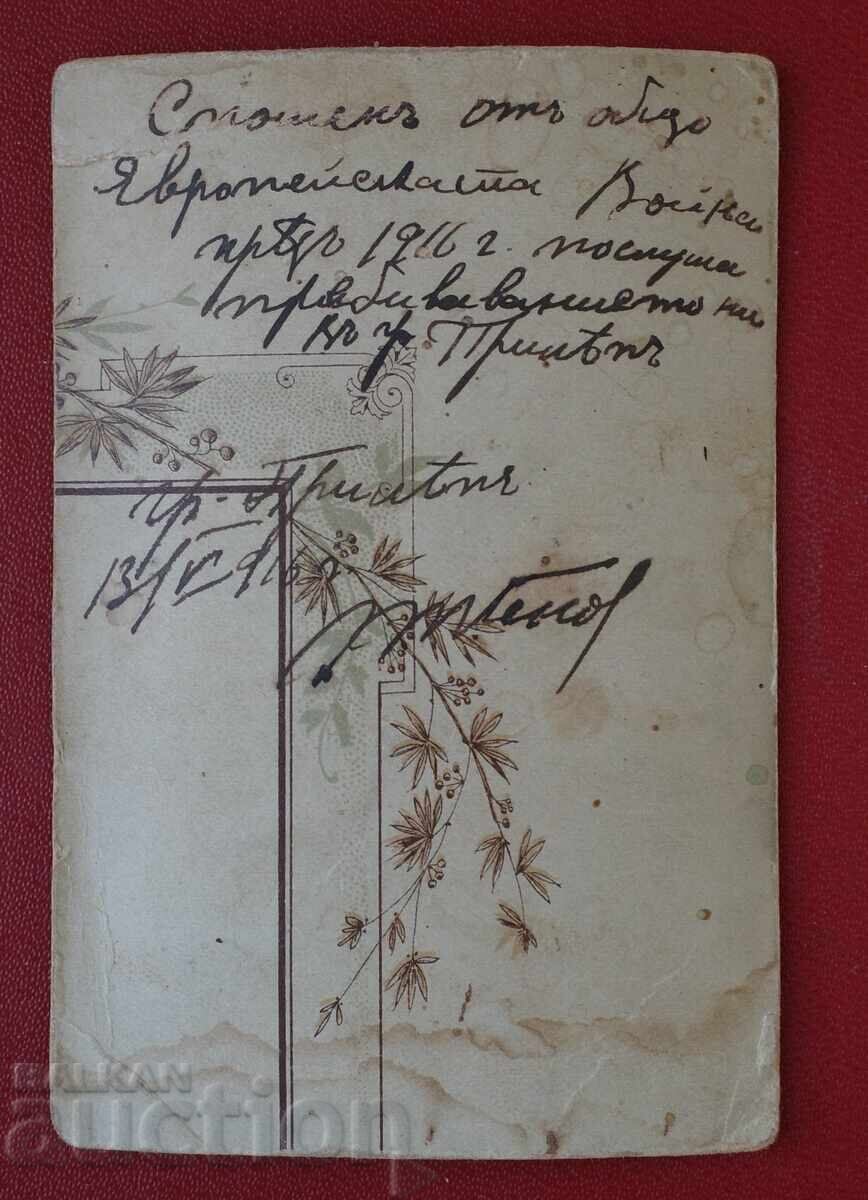 Споменъ отъ общо
Европейската Война
прѣдъ 1916 г. послуша
прѣбиваваннието ни
въ гр Прилѣпъ
гр. Прилѣпъ
13/VI 916 г
BALKAN
auction